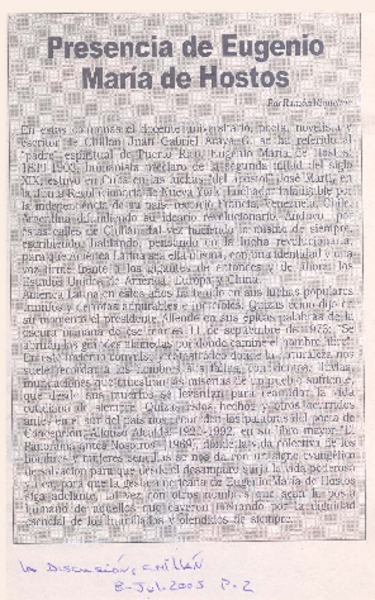 Presencia de Eugenio
María de Hostos
Por Ramón
En estas columnas el docente universitario, poeta, novelista y
escritor de Chillán Juan Gabriel Araya G. se ha referido al
"padre" espiritual de Puerto Rico, Eugenio María de Hostos,
1839-1903, humanista preclaro de la segunda mitad del siglo
XIX, estuvo en Cuba en las luchas del "apóstol" José Martí, en
la Junta Revolucionaria de Nueva York, luchador infatigable por
la independencia de su país, recorrió Francia, Venezuela, Chile,
Argentina difundiendo su ideario revolucionario. Anduvo por
estas calles de Chillán tal vez haciendo lo mismo de siempre,
escribiendo, hablando, pensando en la lucha revolucionaria,
para que América Latina sea ella misma, con una identidad y una
voz firme frente a los gigantes de entonces y de ahora: los
Estados Unidos de América, Europa y China.
América Latina en estos años ha tenido en sus luchas populares
triunfos y derrotas Quizás como dijo en
su momento el presidente Allende en sus épicas palabras de la
oscura mañana de ese martes 11 de septiembre de 1973: "Se
abrirán las grandes alamedas por donde camine el hombre libre".
En este invierno donde la naturaleza nos
suele recordar a los hombres sus fallas, con lluvias,
inundaciones que muestran las miserias de un pueblo sufriente,
que desde sus se levantan para reanudar la vida
cotidiana de siempre. Quizás estos hechos y otros ocurridos
antes en el sur del país nos recuerdan las palabras del poeta de
Concepción, Alfonso Alcalde, 1921-1992, en su libro mayor "El
Panorama ante Nosotros" 1969, donde la vida colectiva de los
hombres y mujeres sencillas se nos da con un signo evangélico
de salvación para que desde el desamparo surja la vida poderosa
y para que la gesta americana de Eugenio María de Hostos
siga adelante, tal vez con otros nombres que sean la posta
humana de aquellos que cayeron luchando por la dignidad
esencial de los humillados y ofendidos de siempre.
La Discusión, Chillán
8-Jul-2005 P. 2